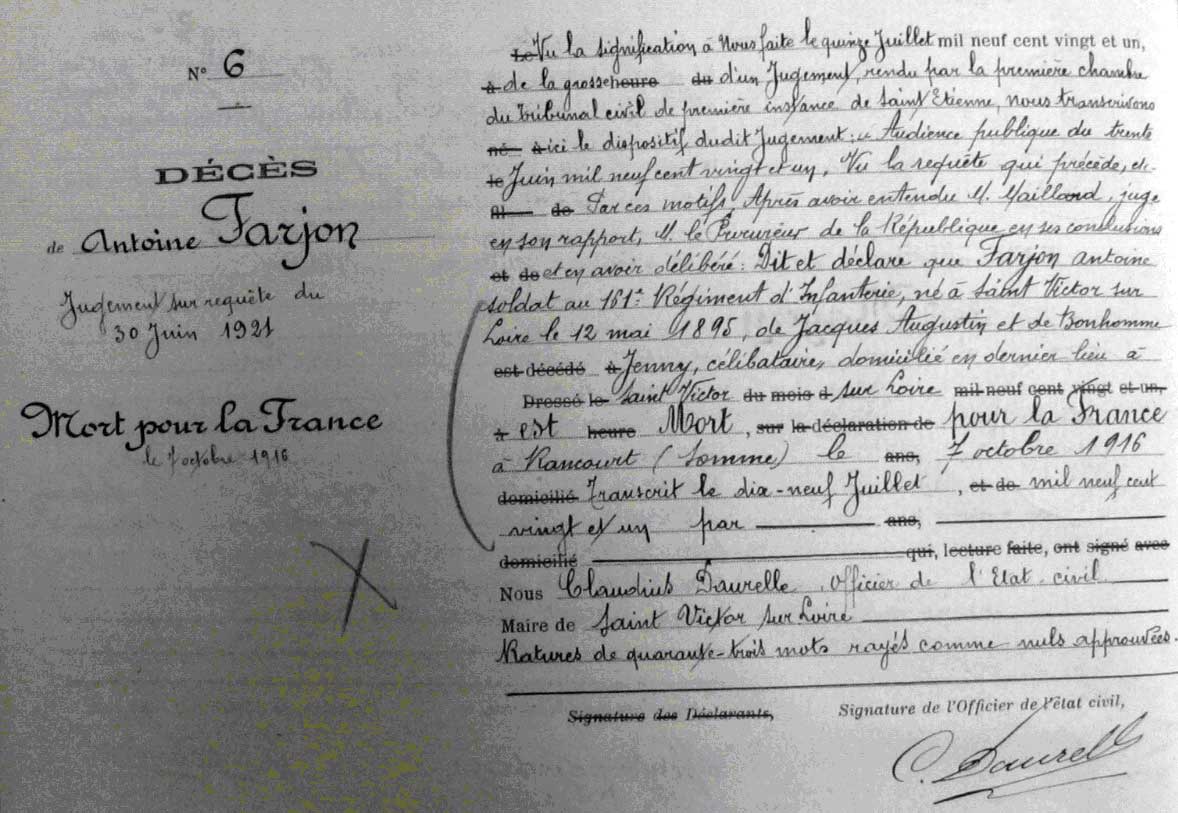 N° 6
DÉCÈS
de Antoine Farjon
Jugement sur requête du
30 Juin 1921
Mort pour la France
le 7 octobre 1916
Le Vu la signification à Nous faite le quinze Juillet mil neuf cent vingt et un,
à de la grosse heure du d'un Jugement, rendu par la première chambre
du Tribunal civil de première instance de Saint Etienne, nous transcrivons
né à ici le dispositif dudit Jugement : « Audience publique du trente
le Juin mil neuf cent vingt et un, Vu la requête qui précède, etc.
fil de Par ces motifs, Après avoir entendu M. Maillard, juge
en son rapport, M. le Procureur de la République en ses conclusions
et de et en avoir délibéré : Dit et déclare que Farjon antoine
soldat au 161e Régiment d'Infanterie, né à Saint Victor sur
Loire le 12 mai 1895, de Jacques Augustin et de Bonhomme
est décédé à Jenny, célibataire, domicilié en dernier lieu à
Dressé le Saint Victor du mois d sur Loire mil neuf cent vingt et un,
à est heure Mort, sur la déclaration de pour la France
à Rancourt (Somme) le ans, 7 octobre 1916
domicilié Transcrit le dix-neuf Juillet, et de mil neuf cent
vingt et un par ans,
domicilié qui, lecture faite, ont signé avec
Nous Claudius Daurelle, Officier de l'Etat-civil
Maire de Saint Victor sur Loire
Ratures de quarante-trois mots rayés comme nuls approuvées.
Signature des Déclarants,
Signature de l'Officier de l'état civil,
C. Daurelle